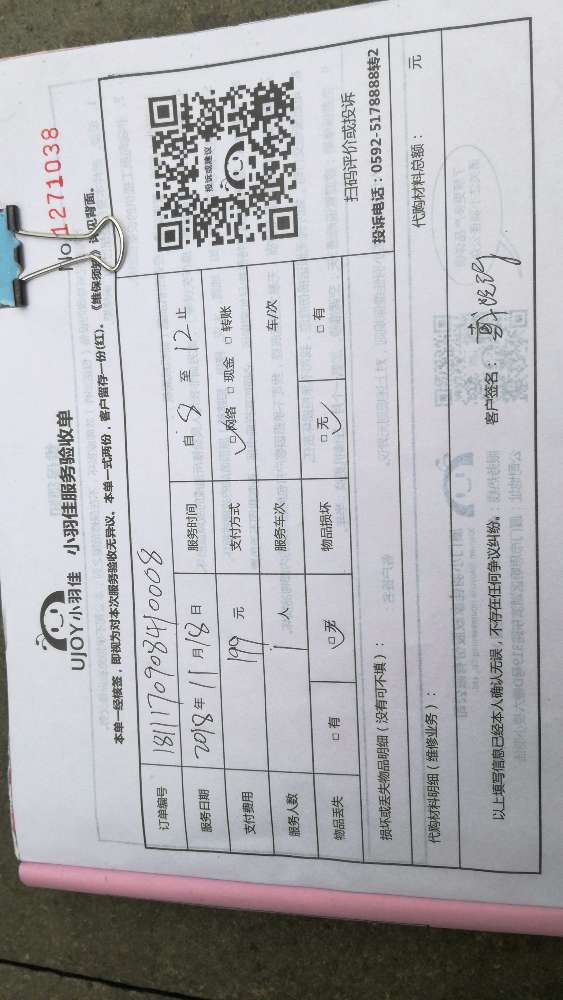 UJOY小羽佳 小羽佳服务验收单
No 1271038
本单一经核签，即视为对本次服务验收无异议。本单一式两份，客户留存一份(红)。《维保须知》详见背面。
订单编号 1811170908410008
服务日期 2018年11月18日 服务时间 自 8 至 12 止
支付费用 199 元 支付方式 ☑网络 □现金 □转账
服务人数 1 人 服务车次 车/次
物品丢失 □有 ☑无 物品损坏 ☑无 □有
投诉或建议
扫码评价或投诉
投诉电话：0592-5178888转2
损坏或丢失物品明细（没有可不填）：
代购材料明细（维修业务）： 代购材料总额： 元
以上填写信息已经本人确认无误，不存在任何争议纠纷。 客户签名：